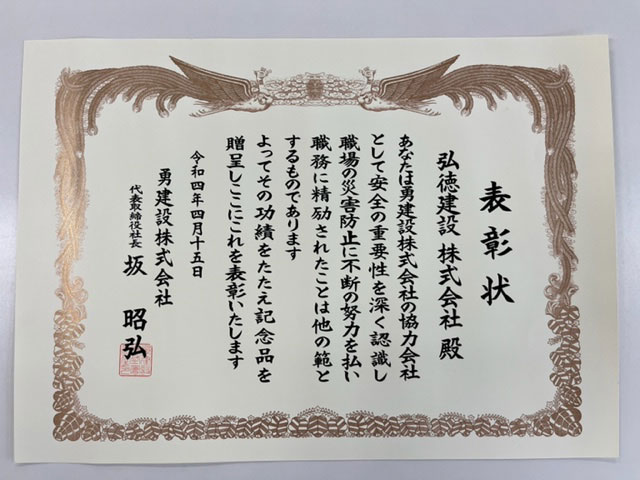 表彰状
弘徳建設 株式会社 殿
あなたは勇建設株式会社の協力会社
として安全の重要性を深く認識し
職場の災害防止に不断の努力を払い
職務に精励されたことは他の範と
するものであります
よってその功績をたたえ記念品を
贈呈しここにこれを表彰いたします
令和四年四月十五日
勇建設株式会社
代表取締役社長 坂 昭弘